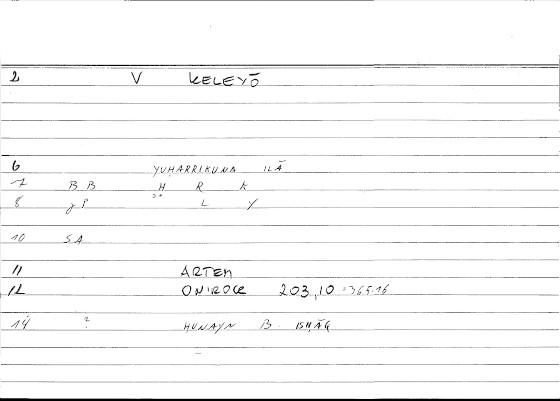 2 V KELEYŌ
6 YUHARRIKUNA ILĀ
7 BB Ḥ R K
8 gP L Y
10 SA
11 ARTEM
12 ONIROCR 203,10 = 365,16
14 ? HUNAYN B. ISḤĀQ